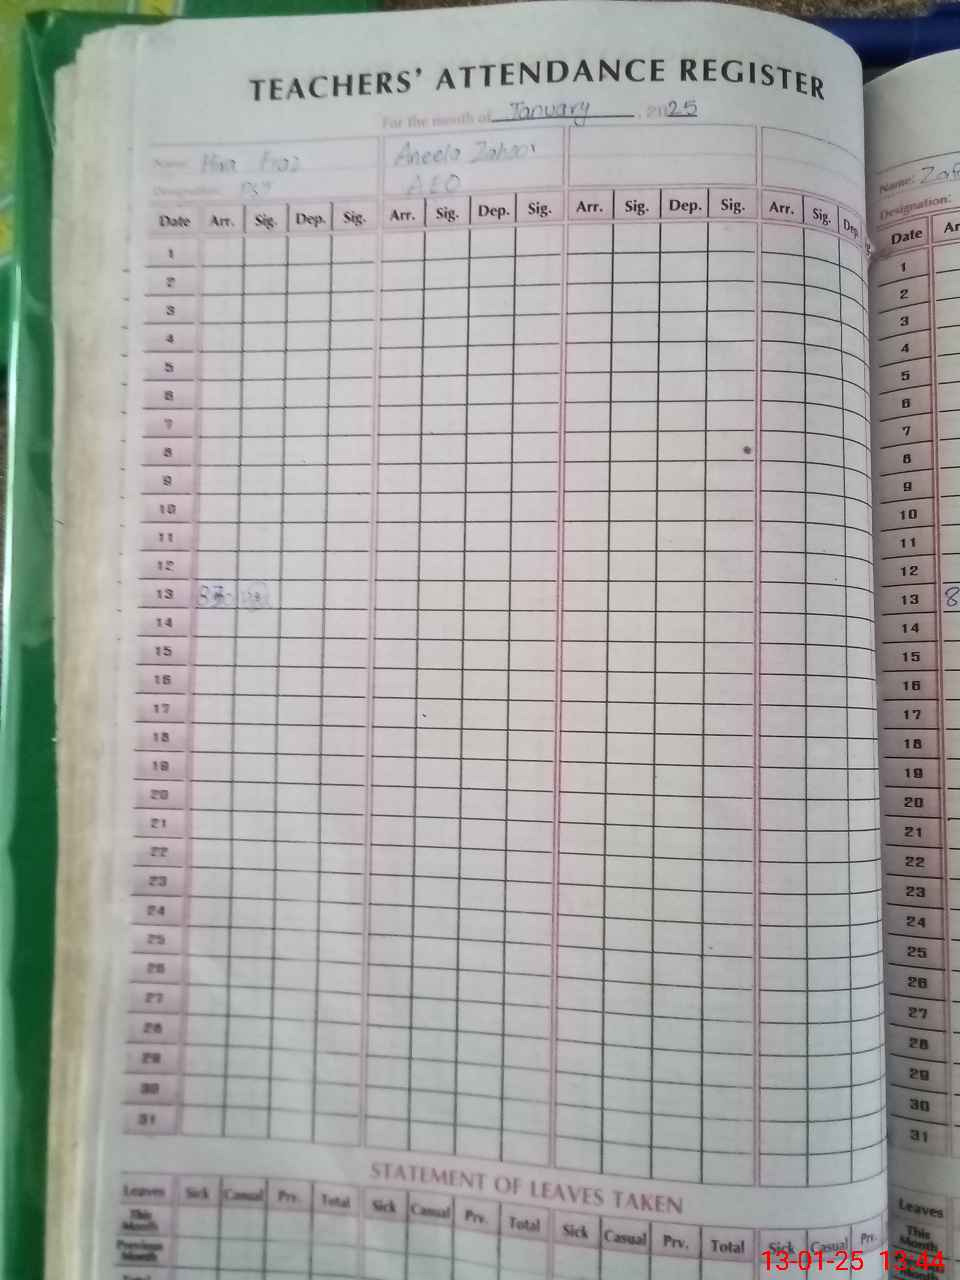 TEACHERS' ATTENDANCE REGISTER
For the month of January, 2025
Name: Hira Fraz Aneela Zahoor
Designation: PST AEO
Date Arr. Sig. Dep. Sig. Arr. Sig. Dep. Sig. Arr. Sig. Dep. Sig. Arr. Sig. Dep.
1
2
3
4
5
6
7
8
9
10
11
12
13 830
14
15
16
17
18
19
20
21
22
23
24
25
26
27
28
29
30
31
STATEMENT OF LEAVES TAKEN
Leaves Sick Casual Prv. Total Sick Casual Prv. Total Sick Casual Prv. Total Sick Casual Prv.
This Month
Previous Month
Total
Name:
Designation:
Date
1
2
3
4
5
6
7
8
9
10
11
12
13 8
14
15
16
17
18
19
20
21
22
23
24
25
26
27
28
29
30
31
Leaves
This Month
13-01-25 13:44